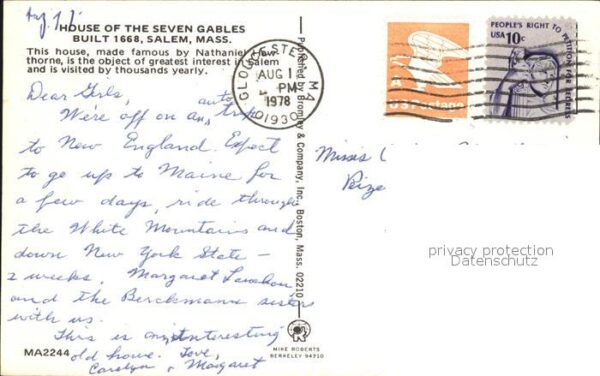 HOUSE OF THE SEVEN GABLES
BUILT 1668, SALEM, MASS.
This house, made famous by Nathaniel Haw-
thorne, is the object of greatest interest in Salem
and is visited by thousands yearly.
Dear Girls,
We're off on an auto trip
to New England. Expect
to go up to Maine for
a few days, ride through
the White Mountains and
down New York State –
2 weeks. Margaret
and the Berckmann sisters
with us.
This is an interesting
old home. Love,
Carolyn & Margaret
MA2244
Published by Bromley & Company, Inc., Boston, Mass. 02210
MIKE ROBERTS
BERKELEY 94710
GLOUCESTER MA
AUG 1
PM
1978
01930
A
US Postage
PEOPLE'S RIGHT TO PETITION FOR REDRESS
USA 10c
Misses
privacy protection
Datenschutz